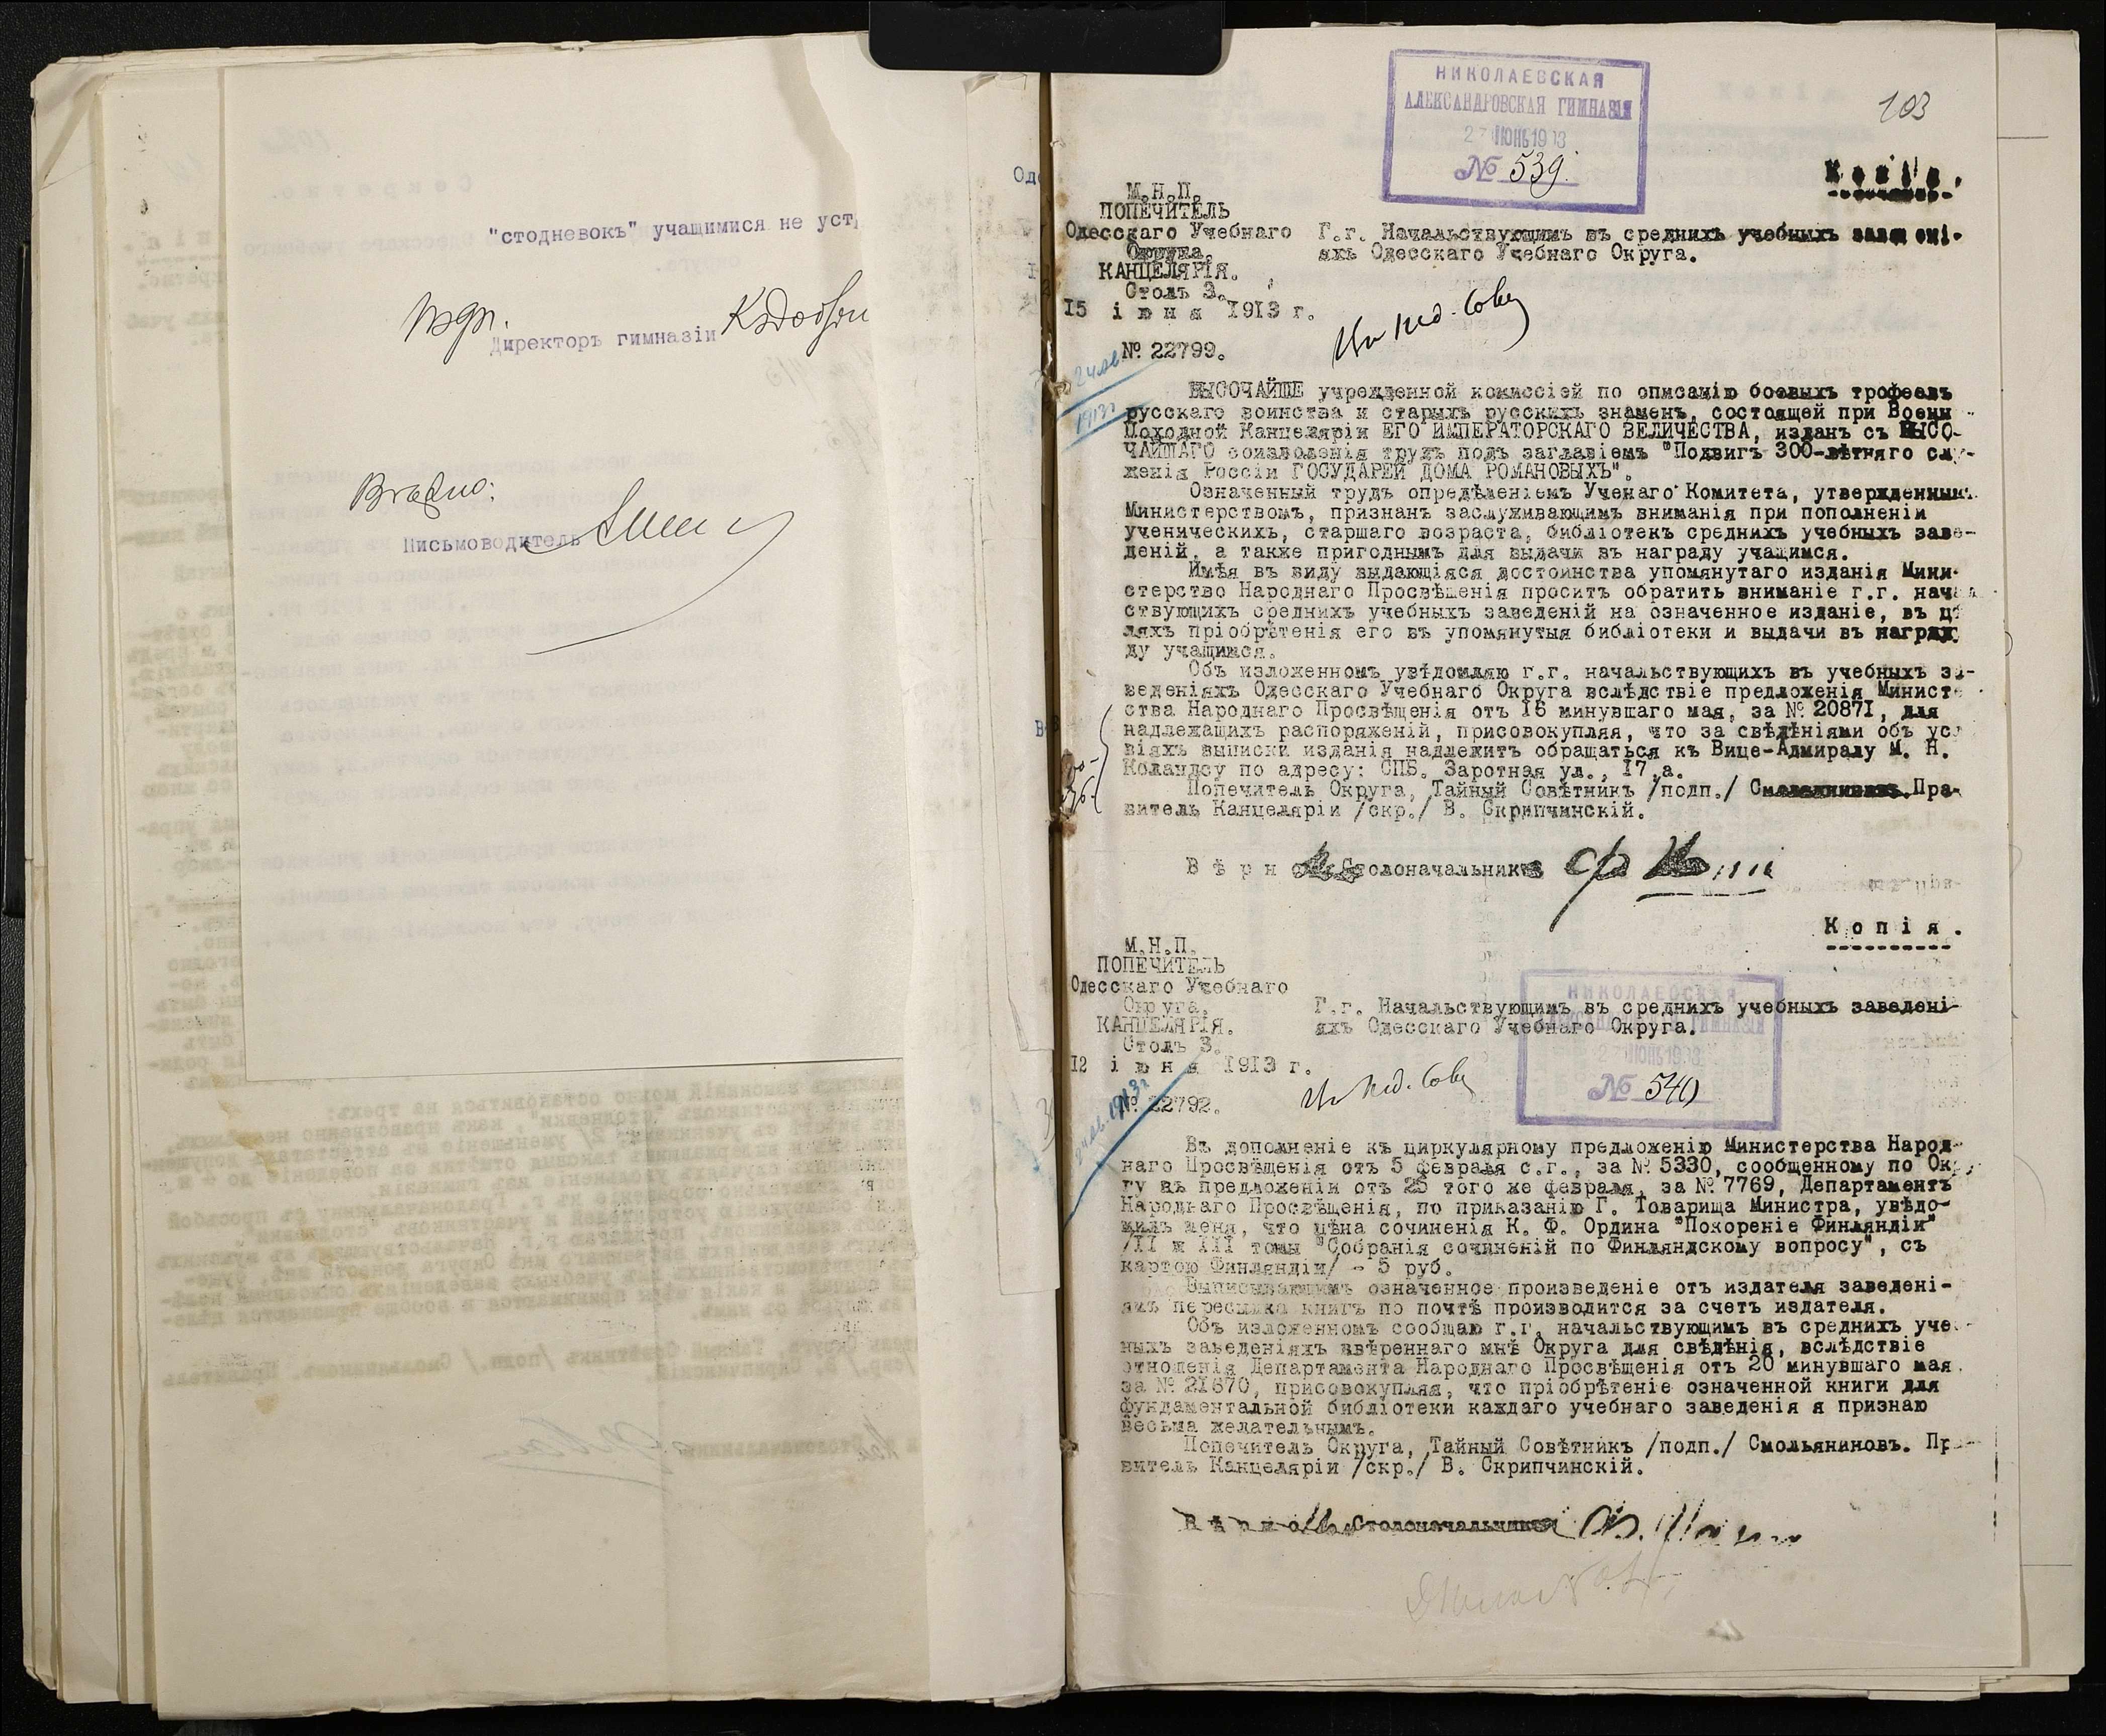 "стодневокъ" учащимися не уст
Директоръ гимназіи
Письмоводитель
НИКОЛАЕВСКАЯ
АЛЕКСАНДРОВСКАЯ ГИМНАЗІЯ
ІЮНЬ 1913
№ 539.
103
Копія.
М.Н.П.
ПОПЕЧИТЕЛЬ
Одесскаго Учебнаго
Округа.
КАНЦЕЛЯРІЯ.
Столъ 3.
15 іюня 1913 г.
№ 22799.
Г.г. Начальствующимъ въ среднихъ учебныхъ заведені-
яхъ Одесскаго Учебнаго Округа.
1913 г
ВЫСОЧАЙШЕ учрежденной комиссіей по описанію боевыхъ трофеевъ
русскаго воинства и старыхъ русскихъ знаменъ, состоящей при Военн
Походной Канцеляріи ЕГО ИМПЕРАТОРСКАГО ВЕЛИЧЕСТВА, изданъ съ ВЫСО-
ЧАЙШАГО соизволенія трудъ подъ заглавіемъ "Подвигъ 300-лѣтняго слу-
женія Россіи ГОСУДАРЕЙ ДОМА РОМАНОВЫХЪ".
Означенный трудъ опредѣленіемъ Ученаго Комитета, утвержденнымъ
Министерствомъ, признанъ заслуживающимъ вниманія при пополненіи
ученическихъ, старшаго возраста, библіотекъ среднихъ учебныхъ заве-
деній, а также пригоднымъ для выдачи въ награду учащимся.
Имѣя въ виду выдающіяся достоинства упомянутаго изданія Мини-
стерство Народнаго Просвѣщенія проситъ обратить вниманіе г.г. начал
ствующихъ среднихъ учебныхъ заведеній на означенное изданіе, въ цѣ
ляхъ пріобрѣтенія его въ упомянутыя библіотеки и выдачи въ награ
ду учащимся.
Объ изложенномъ увѣдомляю г.г. начальствующихъ въ учебныхъ за-
веденіяхъ Одесскаго Учебнаго Округа вслѣдствіе предложенія Министе
ства Народнаго Просвѣщенія отъ 16 минувшаго мая, за № 20871, для
надлежащихъ распоряженій, присовокупляя, что за свѣдѣніями объ усл
віяхъ выписки изданія надлежитъ обращаться къ Вице-Адмиралу М. Н.
Коландсу по адресу: СПБ. Заротная ул., 17,а.
Попечитель Округа, Тайный Совѣтникъ /подп./ Смольяниновъ. Пра-
витель Канцеляріи /скр./ В. Скрипчинскій.
Вѣрно: Столоначальникъ
Копія.
М.Н.П.
ПОПЕЧИТЕЛЬ
Одесскаго Учебнаго
Округа.
КАНЦЕЛЯРІЯ.
Столъ 3.
12 іюня 1913 г.
№ 22792.
Г.г. Начальствующимъ въ среднихъ учебныхъ заведені-
яхъ Одесскаго Учебнаго Округа.
НИКОЛАЕВСКАЯ
ІЮНЬ 1913
№ 540
Въ дополненіе къ циркулярному предложенію Министерства Народ-
наго Просвѣщенія отъ 5 февраля с.г., за № 5330, сообщенному по Окр
гу въ предложеніи отъ 25 того же февраля, за № 7769, Департаментъ
Народнаго Просвѣщенія, по приказанію Г. Товарища Министра, увѣдо-
милъ меня, что цѣна сочиненія К. Ф. Ордина "Покореніе Финляндіи"
/II и III томы "Собранія сочиненій по Финляндскому вопросу", съ
картою Финляндіи/ - 5 руб.
Выписывающимъ означенное произведеніе отъ издателя заведені-
ямъ пересылка книгъ по почтѣ производится за счетъ издателя.
Объ изложенномъ сообщаю г.г. начальствующимъ въ среднихъ уче
ныхъ заведеніяхъ ввѣреннаго мнѣ Округа для свѣдѣнія, вслѣдствіе
отношенія Департамента Народнаго Просвѣщенія отъ 20 минувшаго мая,
за № 21670, присовокупляя, что пріобрѣтеніе означенной книги для
фундаментальной библіотеки каждаго учебнаго заведенія я признаю
весьма желательнымъ.
Попечитель Округа, Тайный Совѣтникъ /подп./ Смольяниновъ. Пра
витель Канцеляріи /скр./ В. Скрипчинскій.
Вѣрно: Столоначальникъ